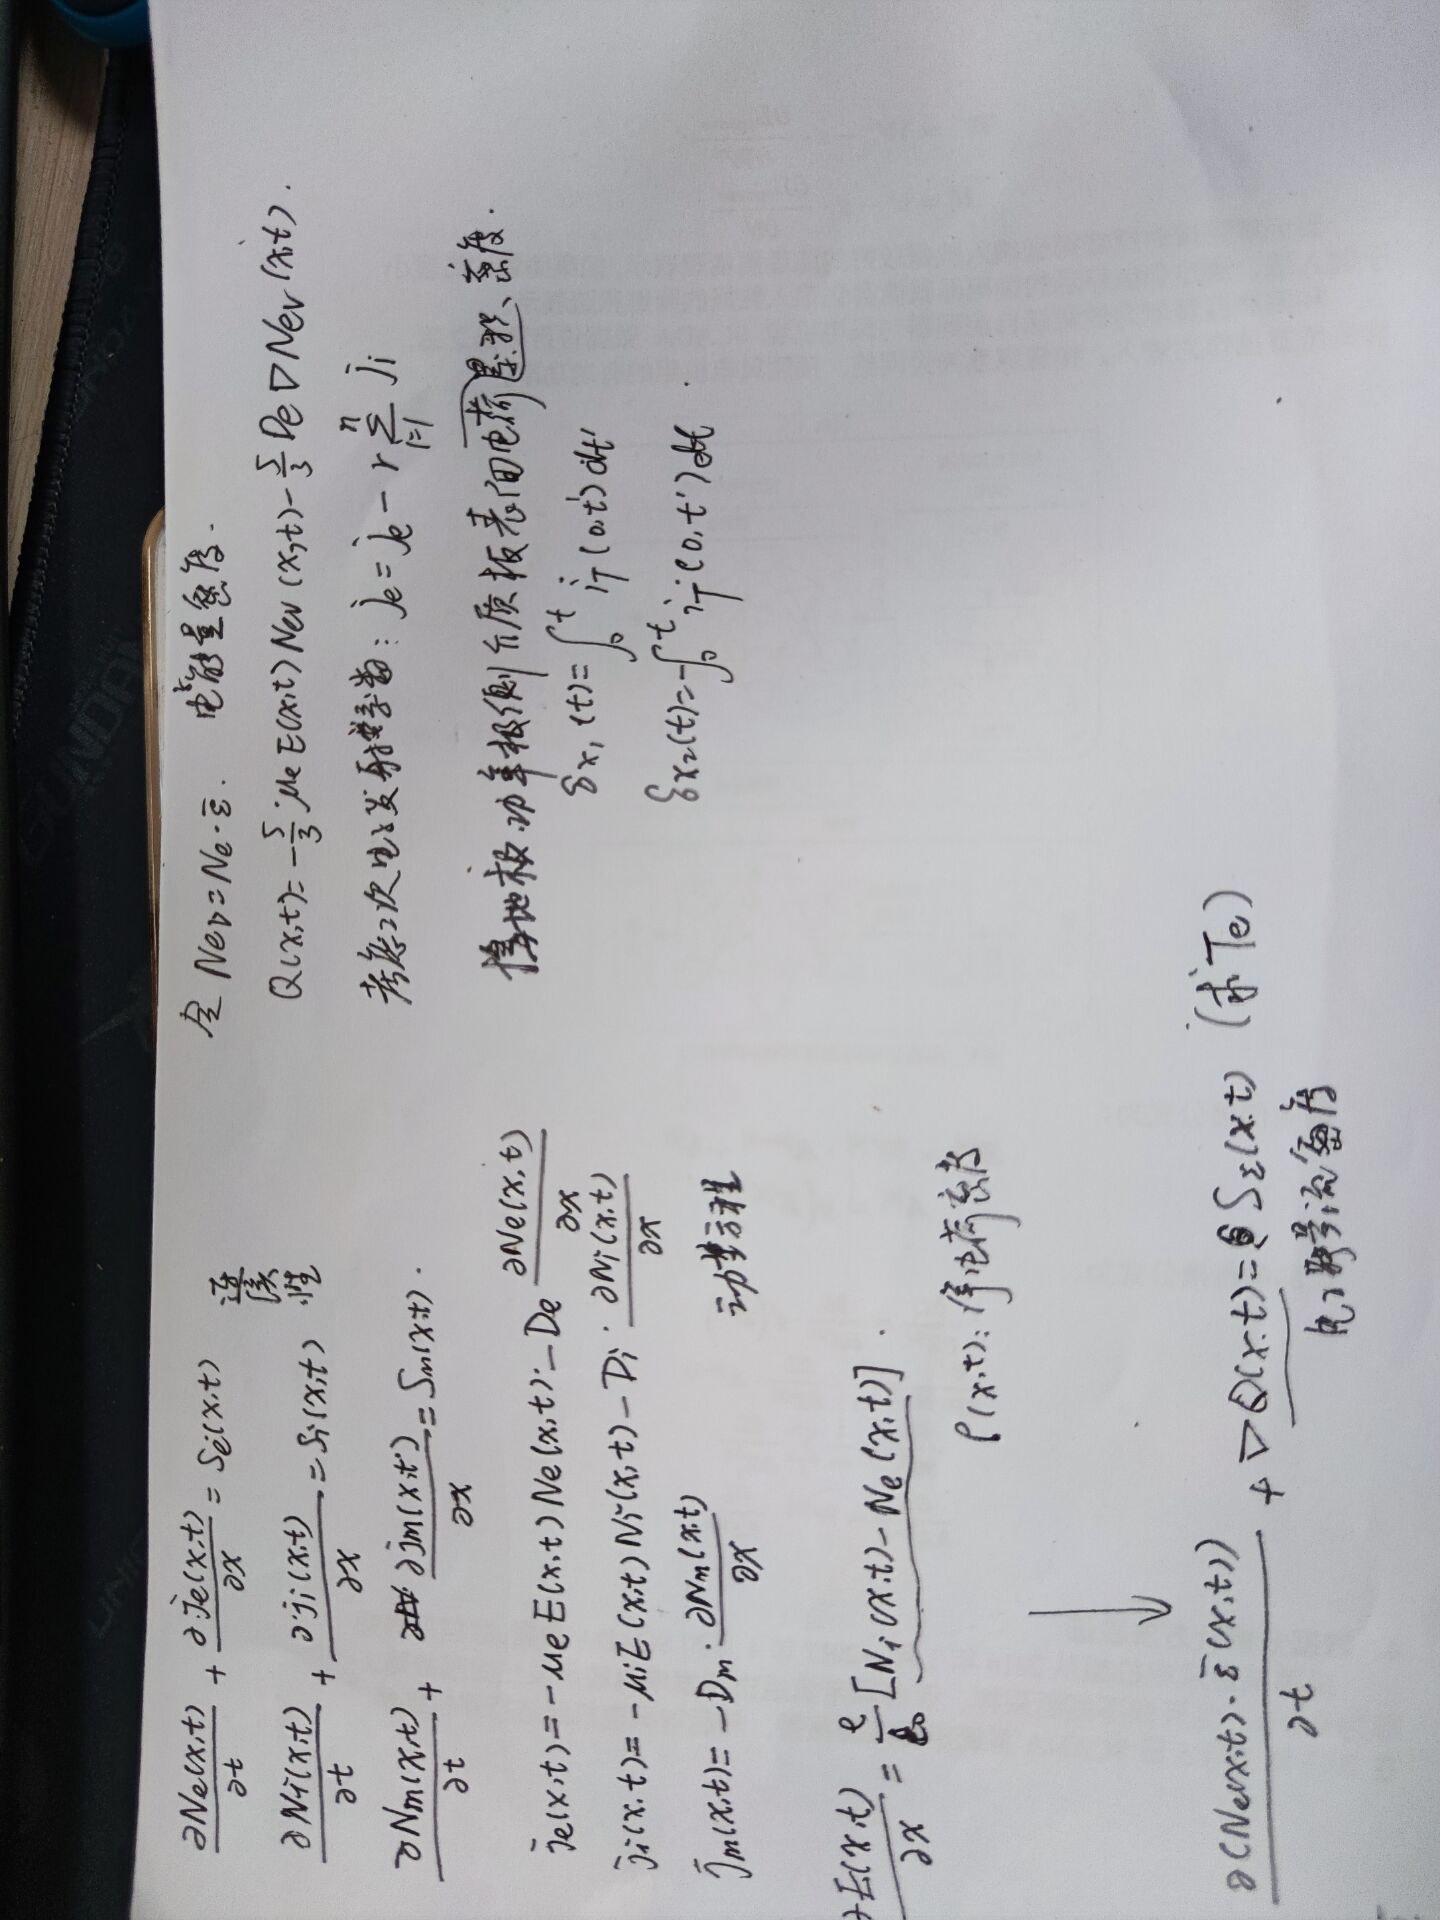 ∂Ne(x,t)/∂t + ∂je(x,t)/∂x = Se(x,t) 连续性
∂Ni(x,t)/∂t + ∂ji(x,t)/∂x = Si(x,t)
∂Nm(x,t)/∂t + ∂jm(x,t)/∂x = Sm(x,t).
je(x,t) = -μeE(x,t)Ne(x,t) - De ∂Ne(x,t)/∂x
ji(x,t) = -μiE(x,t)Ni(x,t) - Di · ∂Ni(x,t)/∂x
jm(x,t) = -Dm · ∂Nm(x,t)/∂x 动量方程
∂E(x,t)/∂x = e/ε0 [Ni(x,t) - Ne(x,t)].
ρ(x,t): 净电荷密度
↓
∂(Ne(x,t)·ε̄(x,t))/∂t + ∇Q(x,t) = Sε(x,t) (求Te)
电子能量流密度
令 Nev = Ne·ε̄. 电子能量密度.
Q(x,t) = -5/3 μeE(x,t)Nev(x,t) - 5/3 De∇Nev(x,t).
考虑二次电子发射系数: je = je - r Σ(i=1→n) ji
接地极、功率极侧介质板表面电荷累积、密度.
δx1(t) = ∫0^t jT(0,t')dt'
δx2(t) = -∫0^t jT(0,t')dt'.